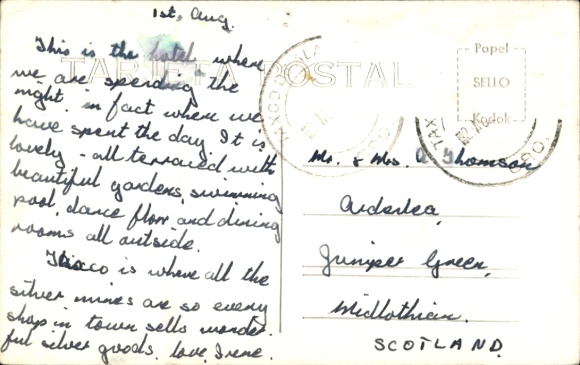 1st, Aug.
This is the hotel where
we are spending the
night. in fact where we
have spent the day. It is
lovely - all terraced with
beautiful gardens, swimming
pool, dance floor and dining
rooms all outside.
Taxco is where all the
silver mines are so every
shop in town sells wonder-
ful silver goods. love, Irene.
TARJETA POSTAL
Papel
SELLO
Kodak
TAX
GRO.
Mr. & Mrs. A Thomson
Arderlea,
Juniper Green,
Midlothian.
SCOTLAND.